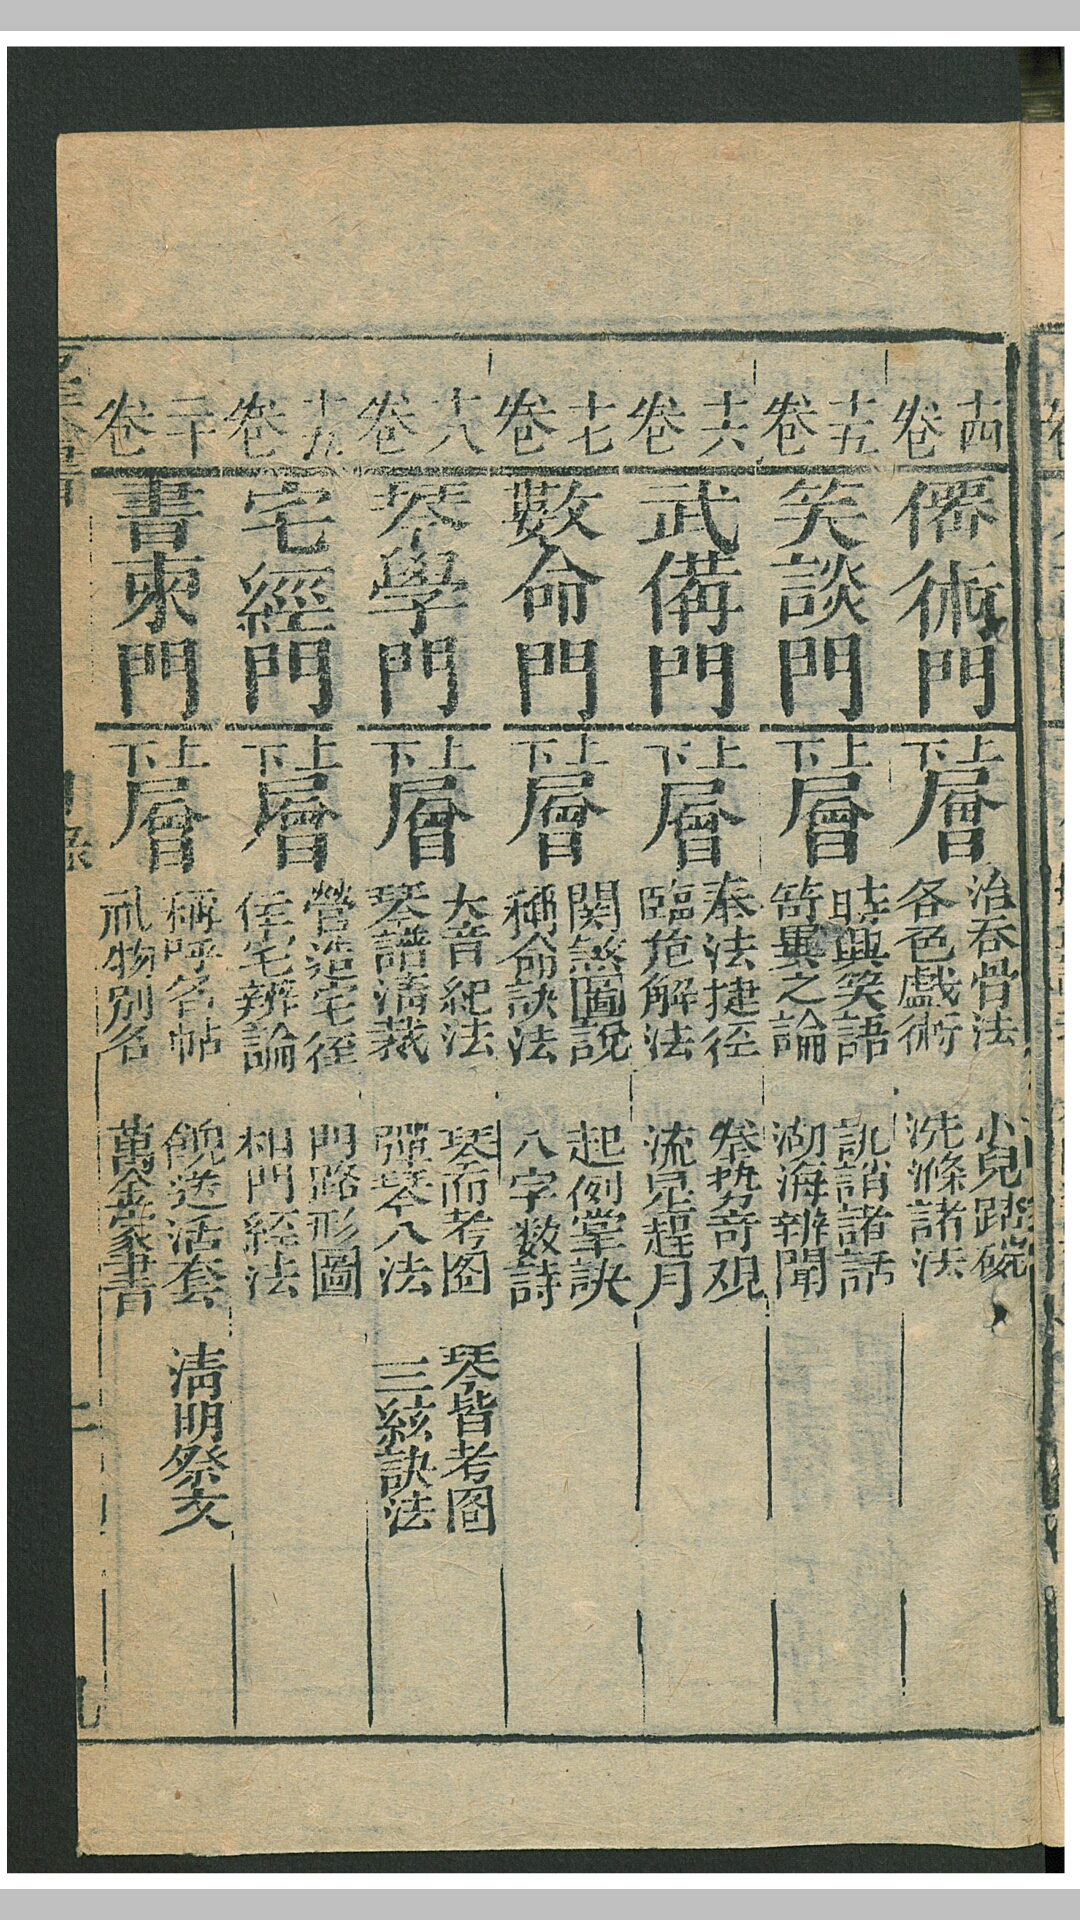 十四卷
僊術門
上層 治吞骨法 小兒跌磕
下層 各色戲術 洗滌諸法
十五卷
笑談門
上層 時興笑語 訕誚諸話
下層 笥異之論 湖海辨聞
十六卷
武備門
上層 奉法捷徑 叅勢奇观
下層 臨危解法 流星趕月
十七卷
數命門
上層 関煞圖說 起例掌訣
下層 稱命訣法 八字数詩
十八卷
琴學門
上層 大音紀法 琴而考圖 琴皆考圖
下層 琴譜清裁 彈琴八法 三絃訣法
十九卷
宅經門
上層 營造宅徑 門路形圖
下層 住宅辨論 相門経法
二十卷
書柬門
上層 稱呼名帖 餽送活套 清明祭文
下層 礼物別名 萬金家書